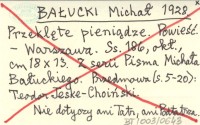 BAŁUCKI Michał 1928
Przeklęte pieniądze. Powieść
– Warszawa. Ss. 186, okł.,
cm 18 x 13. Z serii Pisma Michała
Bałuckiego. Przedmowa (s. 5-20):
Teodor Jeske-Choiński.
Nie dotyczy ani Tatr, ani Podtatrza.
BT|003/0643